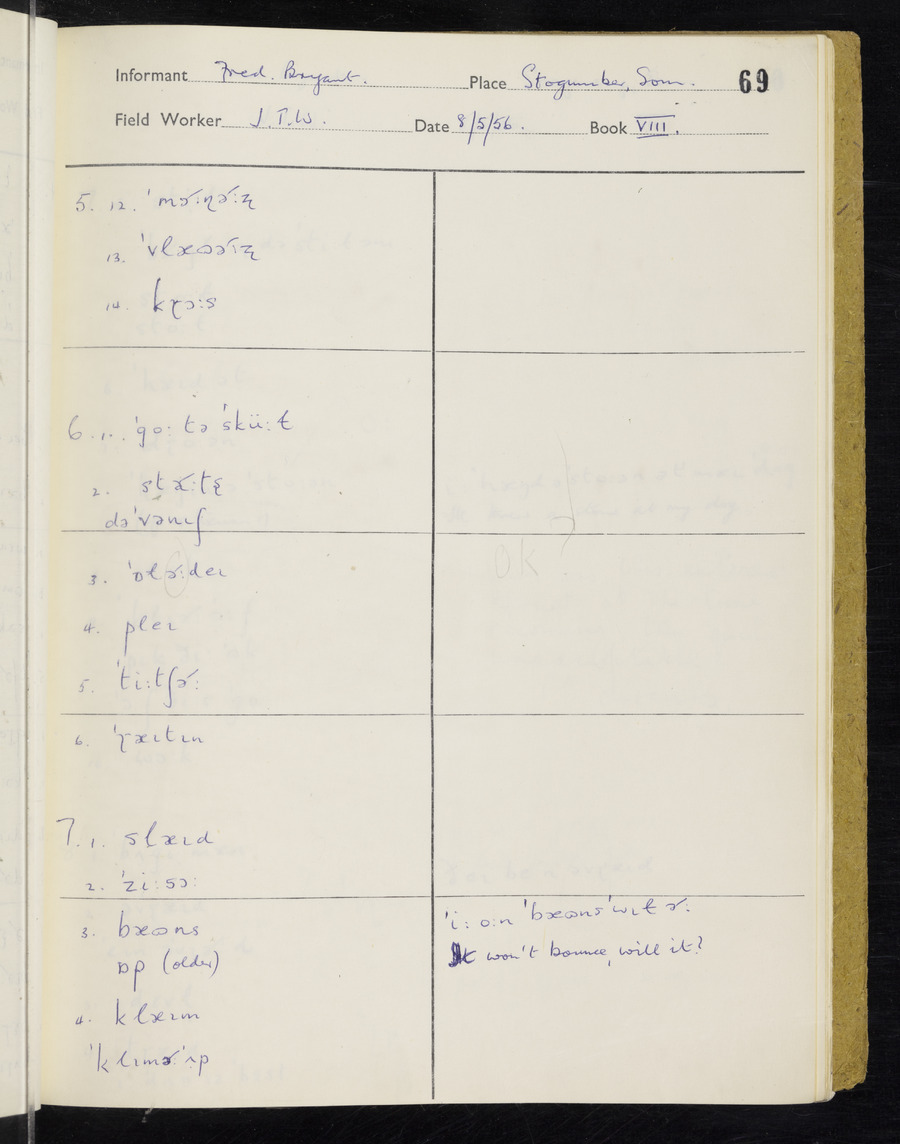 Informant Fred. Bryant. Place Stogumber, Som. 69
Field Worker J.T.W. Date 8/5/56. Book VIII.
5. 12. ˈmɚːɳɚːʐ
13. ˈvlæɷɚːʐ
14. kɽɔːs
6. 1. ˈgoː tə ˈsküːɫ
2.
dəˈvənɪʃ
3.
4. pleɪ
5. ˈtiːtʃɚː
6. ˈɽæɪtɪn
7. 1. slæɪd
2. ˈziːsɔː
3. bæɷns
ɒp (older)
4. klæɪm
ˈklɪmɚːˈɪp
ˈiː oːn ˈbæɷns ˈwɪɫ ɚː
It won't bounce, will it?
OK